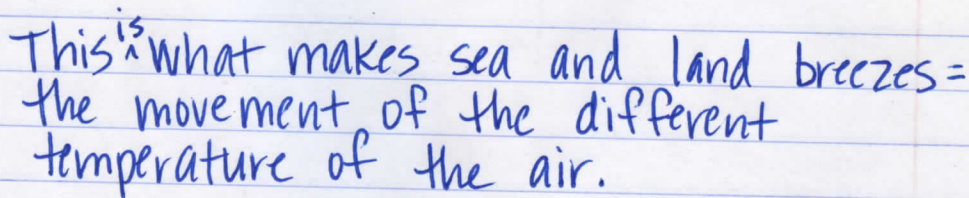 This is what makes sea and land breezes =
the movement of the different
temperature of the air.